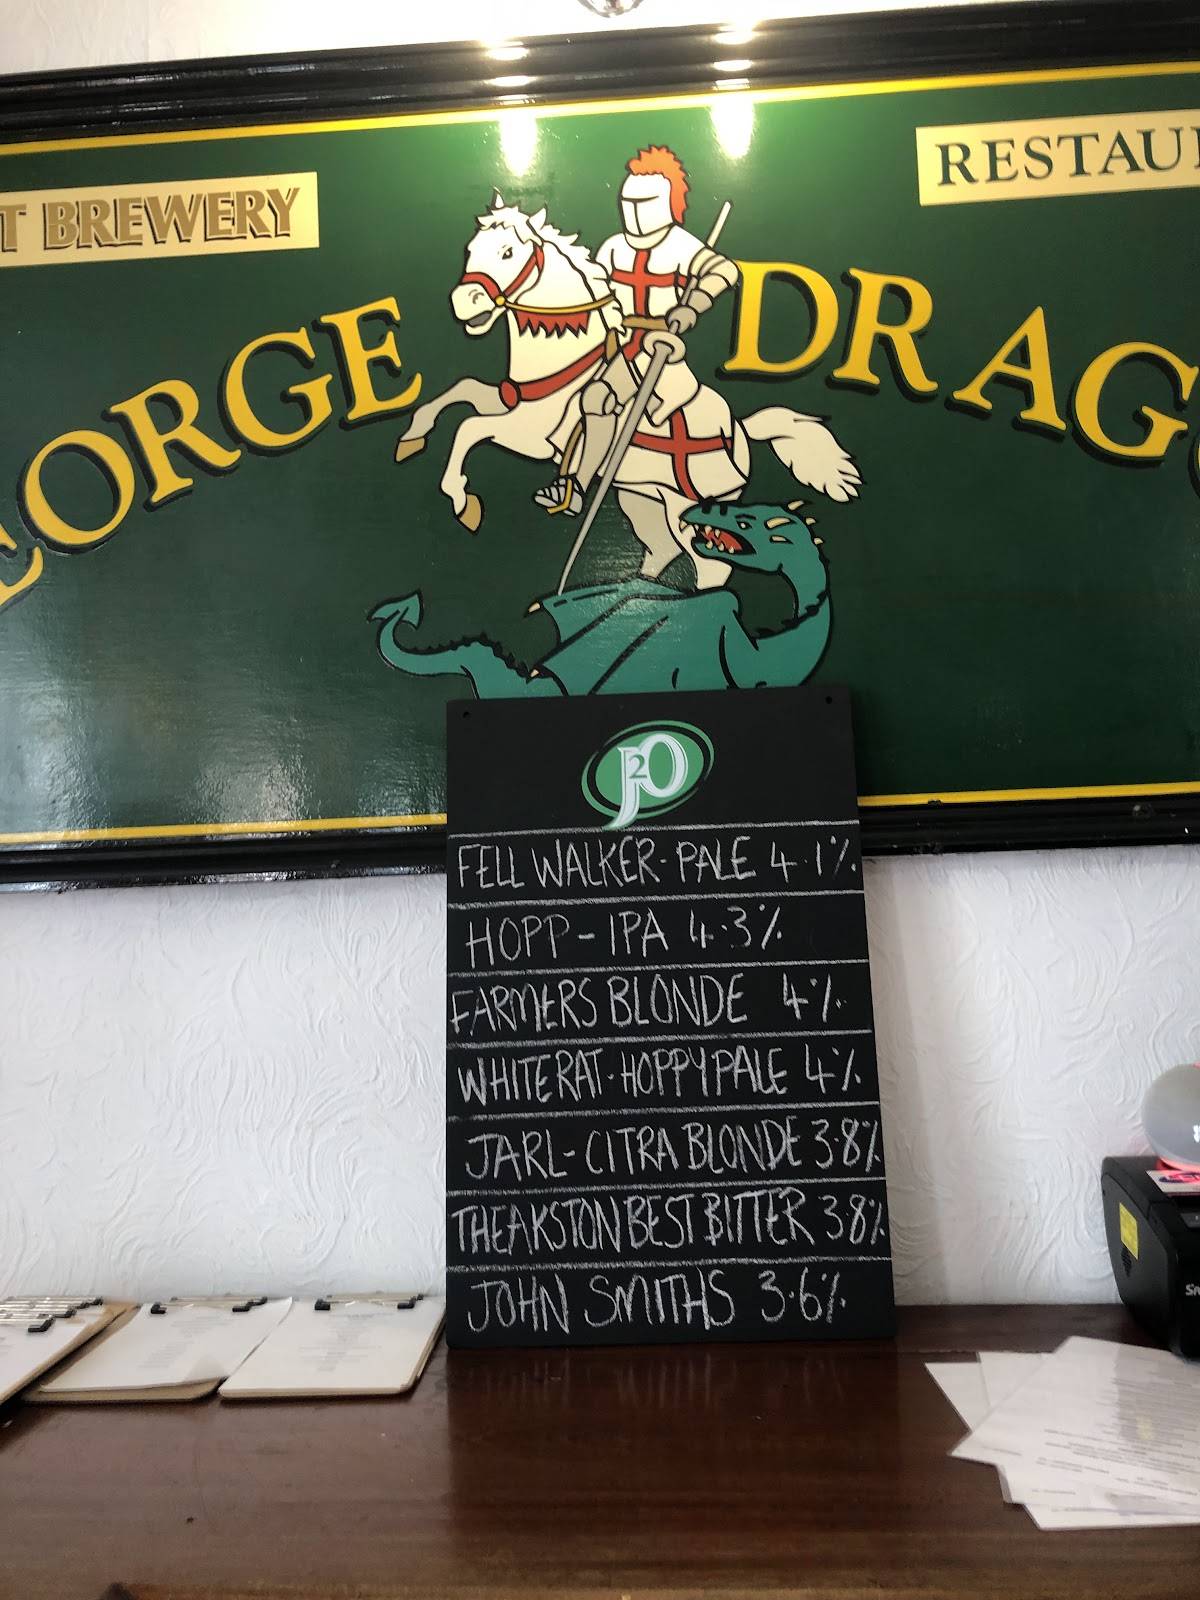 T BREWERY
RESTAU
EORGE DRAG
J2O
FELL WALKER - PALE 4.1%
HOPP - IPA 4.3%
FARMERS BLONDE 4%
WHITE RAT - HOPPY PALE 4%
JARL - CITRA BLONDE 3.8%
THEAKSTON BEST BITTER 3.8%
JOHN SMITHS 3.6%